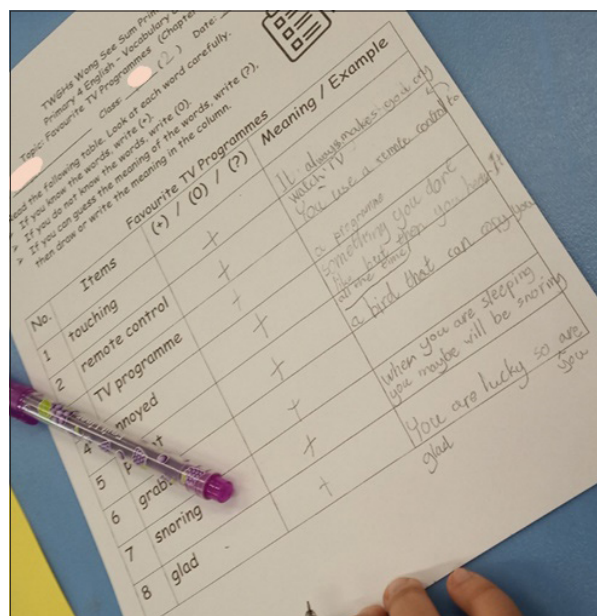 TWGHs Wong See Sum Prim
Primary 4 English - Vocabulary
Topic: Favourite TV Programmes (Chapter
Class: (2) Date:
Read the following table. Look at each word carefully.
➤ If you know the words, write (+).
➤ If you do not know the words, write (0).
➤ If you can guess the meaning of the words, write (?),
then draw or write the meaning in the column.
Favourite TV Programmes
No. Items (+) / (0) / (?) Meaning / Example
1 touching + It always makes you cry
2 remote control + You use a remote control to watch TV
3 TV programme + a programme
4 nnoyed + something you dont like but then you it all the time
5 p t + a bird that can copy you
6 grab +
7 snoring + when you are sleeping you maybe will be snoring
8 glad + You are lucky so are you glad